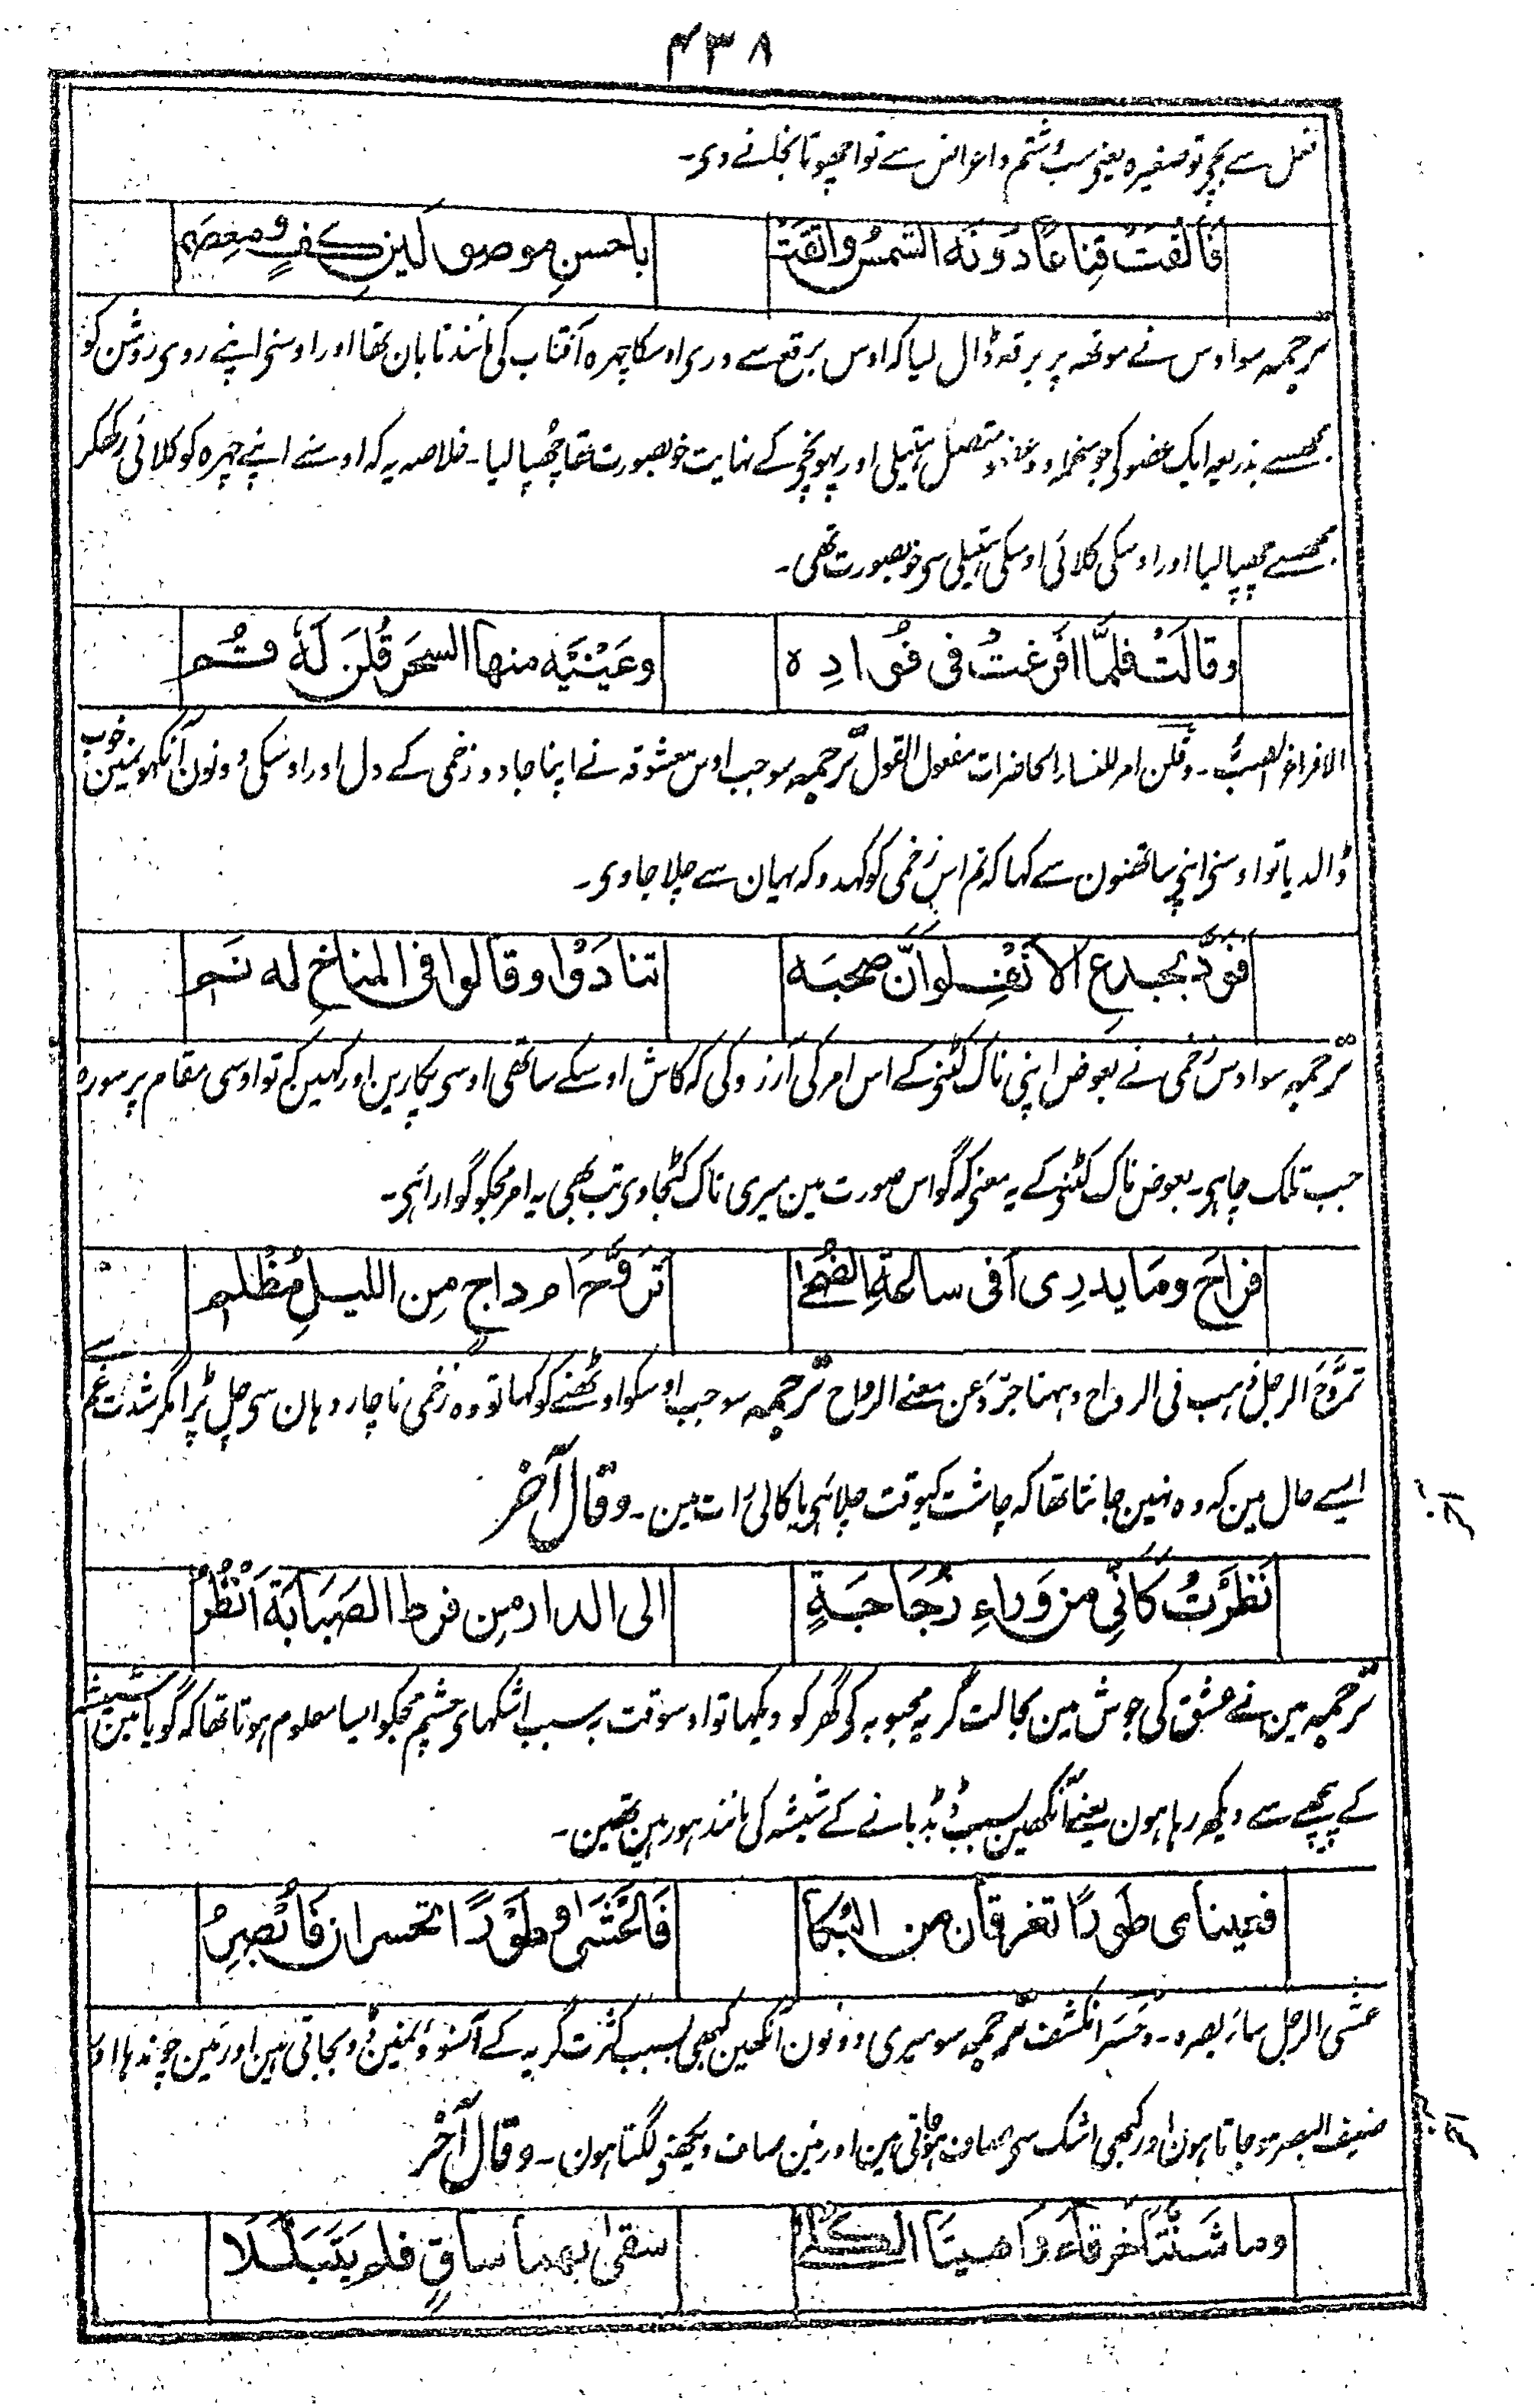 ۴۳۸
قتل سے بچی تو صغیرہ یعنی سب و شتم و اعراض سے تو اچھوتا نجلنے دی۔
فَاَلْقَتْ قِناعًا دُونَه الشمسُ واتَّقَتْ
باحسنِ موصولَينِ كفٍّ ومِعصَمِ
ترجمہ سو اوس نے مونھہ پر برقہ ڈال لیا کہ اوس برقع سے وری اوسکا چہرہ آفتاب کی مانند تابان تھا اور اوسنی اپنے روی روشن کو
مجھسے بذریعہ ایک عضو کی جو منجملہ دو عضو متصل ہتیلی اور پہونچی کے نہایت خوبصورت تھا چھپا لیا۔ خلاصہ یہ کہ اوسنے اپنے چہرہ کو کلائی رکھکر
مجھسے چھپا لیا اور اوسکی کلائی اوسکی ہتیلی سی خوبصورت تھی۔
وقالَتْ فلمَّا افرغتْ فی فُوادِہ
وعَيْنَيْه منها السحرَ قُلنَ لَهٗ قُم
الافراغ الصبُّ۔ وقلن امر للنساء الحاضرات مفعول القول ترجمہ سو جب اوس معشوقہ نے اپنا جادو زخمی کے دل اور اوسکی دونون آنکھونمین خوب
ڈالدیا تو اوسنی اپنی ساتھنون سے کہا کہ تم اس زخمی کو کہدو کہ یہان سے چلا جاوی۔
فوَدَّ بجدعِ الانفِ لو اَنَّ صحبَه
تنادَوْا وقالوا فی المناخِ له نَم
ترجمہ سو اوس زخمی نے بعوض اپنی ناک کٹنی کے اس امر کی آرزو کی کہ کاش اوسکے ساتھی اوسی پکارین اور کہین کہ تو اوسی مقام پر سورہ
جب تلک چاہی۔ بعوض ناک کٹنی کے یہ معنی کہ گو اس صورت مین میری ناک کٹجاوی تب بھی یہ امر مجکو گوارا ہی۔
فراحَ ومَا يدرِی اَفی ساعةِ الضُّحٰی
تَرَوَّحَ ام داجٍ مِن الليلِ مُظلم
تروّح الرجل ذہب فی الرواح وہہنا جرّد عن معنے الرواح ترجمہ سو جب اوسکو اوٹھنے کو کہا تو وہ زخمی ناچار وہان سی چل پڑا مگر شدت غم سے
ایسے حال مین کہ وہ نہین جانتا تھا کہ چاشت کیوقت چلا ہی یا کالی رات مین۔ وقال آخر
نَظَرْتُ كَاَنِّی من وَراءِ زُجَاجَةٍ
الی الدار مِن فرط الصَبَابَة اَنْظُرُ
ترجمہ مین نے عشق کی جوش مین بحالت گریہ محبوبہ کی گھر کو دیکھا تو اوسوقت بہ سبب اشکہای چشم مجکو ایسا معلوم ہوتا تھا کہ گویا مین شیشہ
کے پیچھے سے دیکھ رہا ہون یعنی آنکھین بسبب ڈبڈبانے کے شیشہ کی مانند ہو رہین تھین۔
فعينای طَورًا تغرقان من البُكا
فَاَعْشٰی وطَوْرًا تحسران فَاُبْصِرُ
عشی الرجل ساء بصرہ۔ وحَسَر انکشف ترجمہ سو میری دونون آنکھین کبھی بسبب کثرت گریہ کے آنسوونمین ڈوبجاتی ہین اور مین چوندھا اور
ضعیف البصر ہو جاتا ہون اور کبھی اشک سی صاف ہوجاتی ہین اور مین صاف دیکھنی لگتا ہون۔ وقال آخر
وما شَنَّتَا خرقاءَ وَاهيتَا الكُلٰی
سقٰی بهما ساقٍ فلم يَتَبَلَّلَا